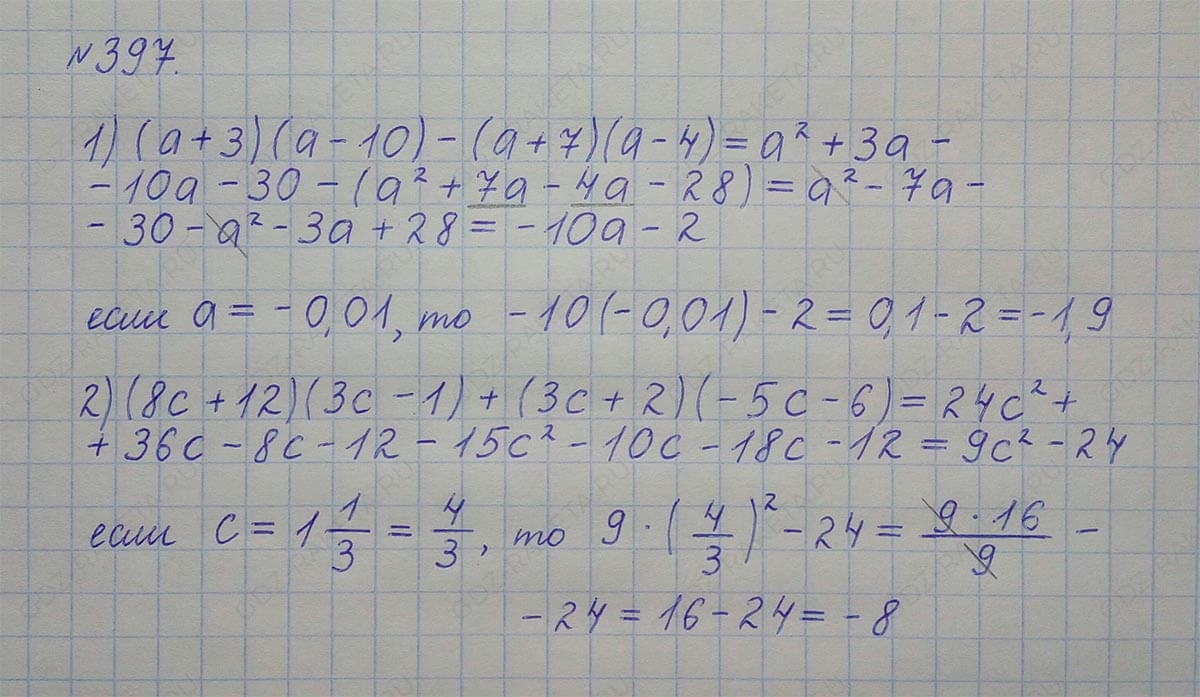 №397.
1) (a+3)(a-10)-(a+7)(a-4)=a²+3a-
-10a-30-(a²+7a-4a-28)=a²-7a-
-30-a²-3a+28=-10a-2
если a=-0,01, то -10(-0,01)-2=0,1-2=-1,9
2) (8c+12)(3c-1)+(3c+2)(-5c-6)=24c²+
+36c-8c-12-15c²-10c-18c-12=9c²-24
если c=1 1/3 = 4/3, то 9·(4/3)²-24= 9·16/9 -
-24=16-24=-8